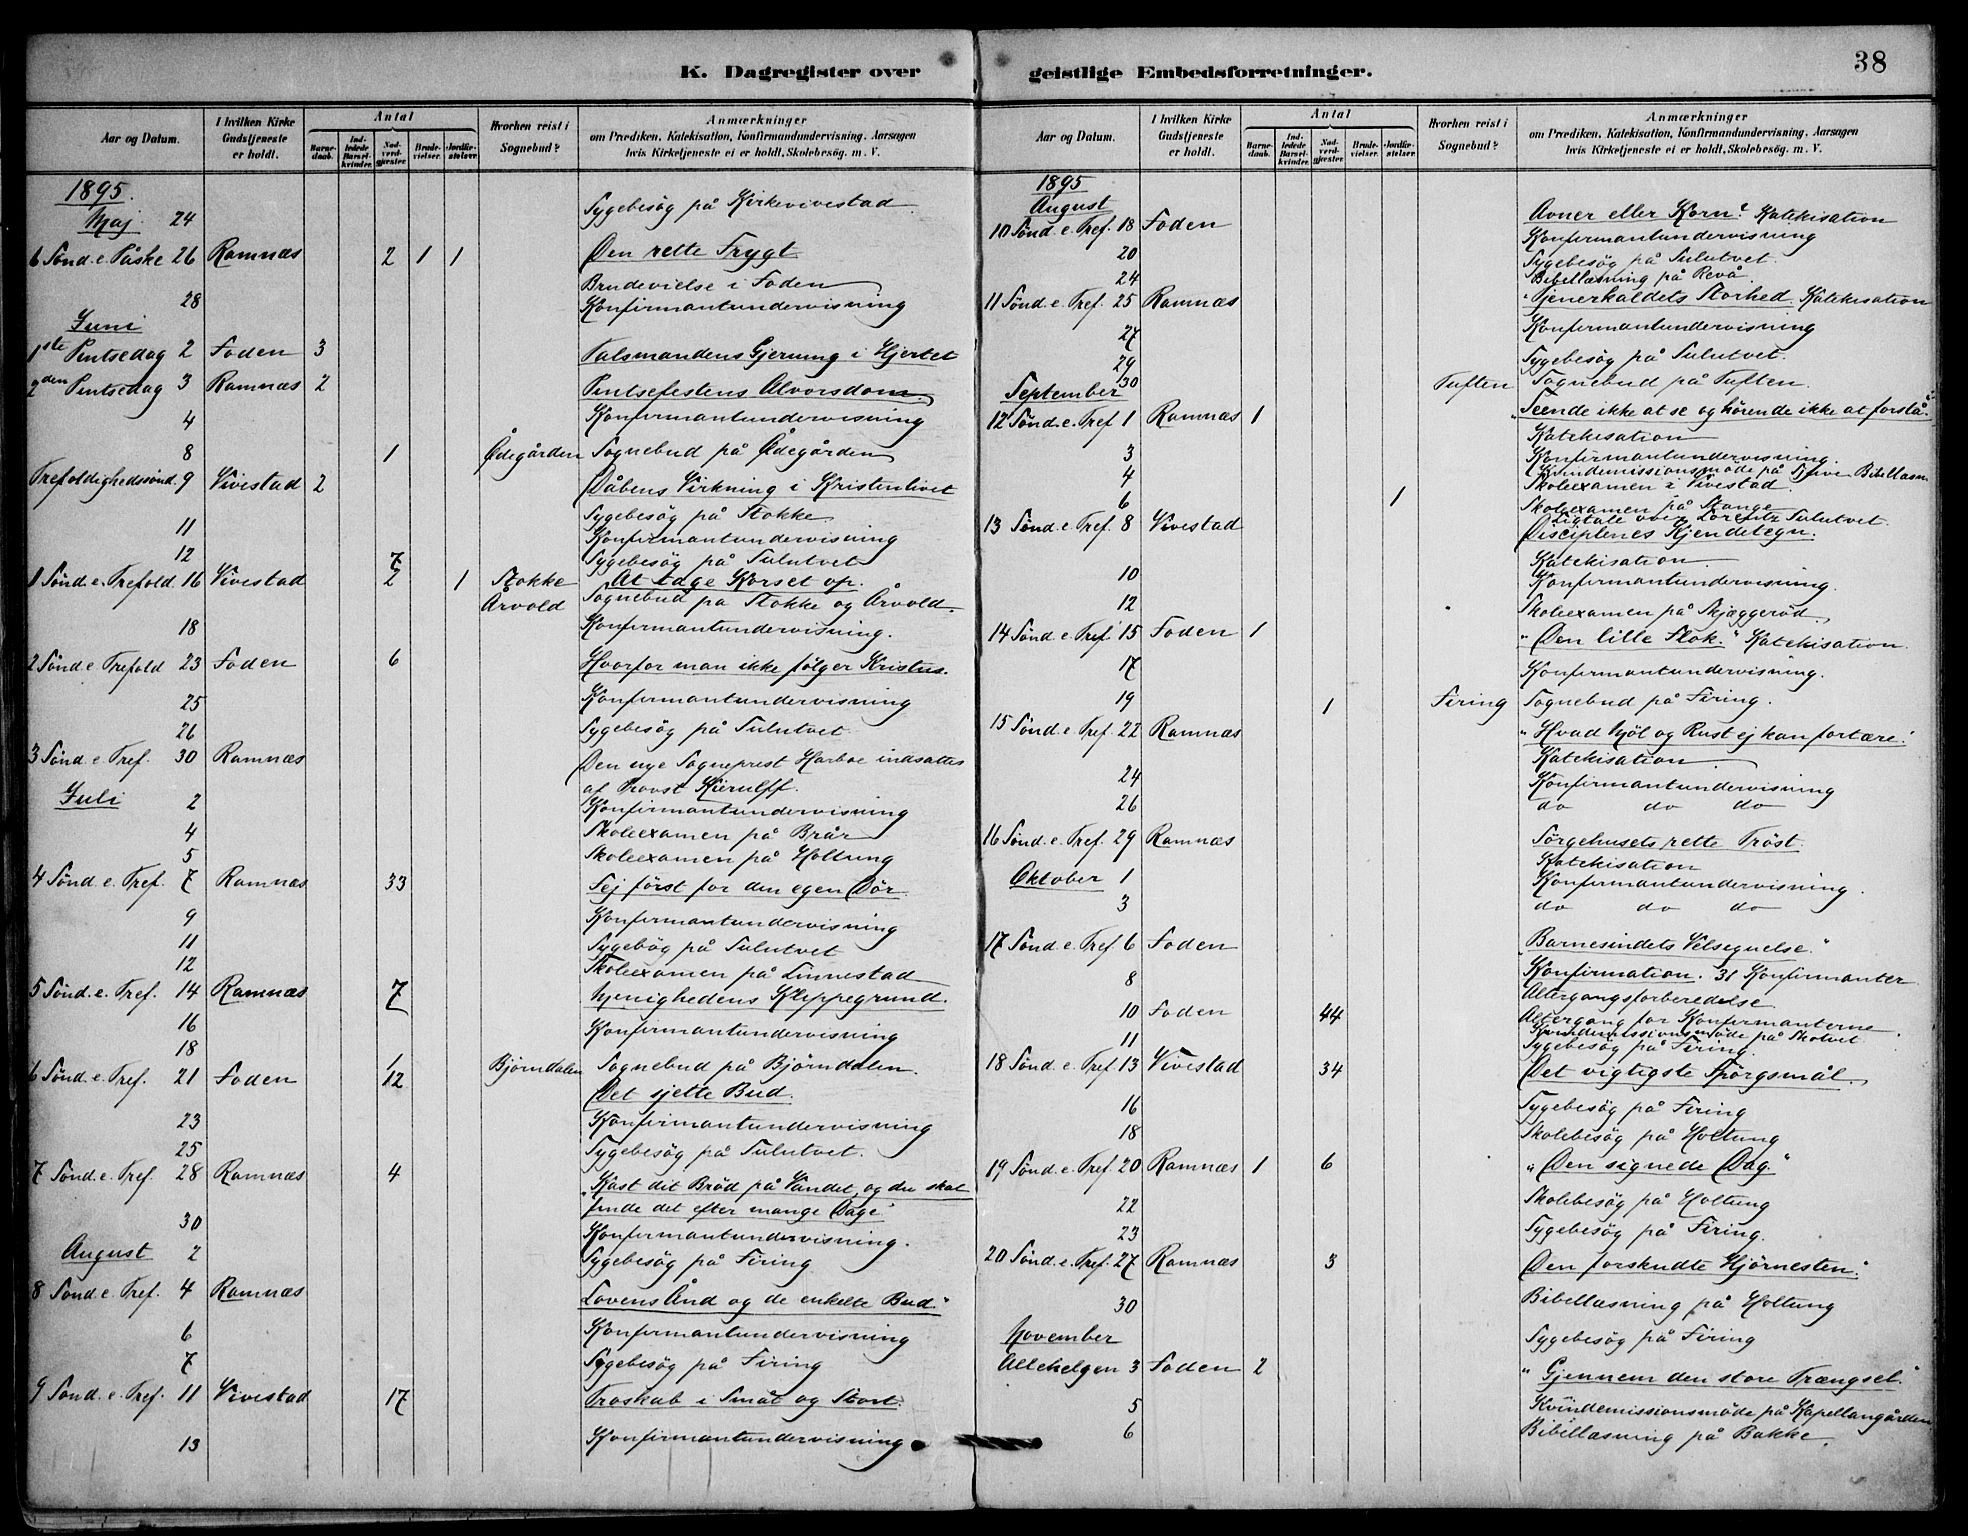 K. Dagregister over geistlige Embedsforretninger.
38
Aar og Datum. I hvilken Kirke Gudstjeneste er holdt. Antal Barnedaab. Indledede Barselkvinder. Nadverdgjester. Brudevielser. Jordfæstelser. Hvorhen reist i Sognebud? Anmærkninger om Prædiken, Katekisation, Konfirmandundervisning, Aarsagen hvis Kirketjeneste ei er holdt, Skolebesøg. m. V.
1895.
Maj 24 Sygebesög på Kirkevivestad.
6 Sönd. e. Påske 26 Ramnæs 2 1 1 Den rette Frygt
Brudevielse i Foden
28 Konfirmantundervisning
Juni
1ste Pentsedag 2 Foden 3 Talsmandens Gjerning i Hjertet
2den Pentsedag 3 Ramnæs 2 Pentsefestens Alvorsdom
4 Konfirmantundervisning
8 1 Ödegården Sognebud på Ödegården
Trefoldighedssönd. 9 Vivestad 2 Dåbens Virkning i Kristenlivet
Sygebesög på Stokke
11 Konfirmantundervisning
12 Sygebesög på Sulutvet
1 Sönd. e. Trefold. 16 Vivestad 7 2 1 Stokke At tage Korset op.
Årvold Sognebud på Stokke og Årvold.
18 Konfirmantundervisning.
2 Sönd. e. Trefold 23 Foden 6 Hvorfor man ikke følger Kristus.
25 Konfirmantundervisning
26 Sygebesög på Sulutvet
3 Sönd. e. Tref. 30 Ramnæs Den nye Sogneprest Harboe indsattes
af Provst Kierulff.
Juli 2 Konfirmantundervisning
4 Skoleexamen på Brår
5 Skoleexamen på Holtung
4 Sönd. e. Tref. 7 Ramnæs 33 Fej först for din egen Dör.
9 Konfirmantundervisning
11 Sygebög på Sulutvet
12 Skoleexamen på Linnestad
5 Sönd. e. Tref. 14 Ramnæs 7 Menighedens Klippegrund.
16 Konfirmantundervisning
18 1 Bjørndalen Sognebud på Bjørndalen.
6 Sönd. e. Tref. 21 Foden 12 Det sjette Bud.
23 Konfirmantundervisning
25 Sygebesög på Sulutvet.
7 Sönd. e. Tref. 28 Ramnæs 4 "Kast dit Bröd på Vandet, og du skal
finde det efter mange Dage"
30 Konfirmantundervisning.
August 2 Sygebesög på Firing
8 Sönd. e. Tref. 4 Ramnæs Lovens Ånd og de enkelte Bud."
6 Konfirmantundervisning
7 Sygebesög på Firing
9 Sönd. e. Tref. 11 Vivestad 17 Troskab i Småt og Stort.
13 Konfirmantundervisning
Aar og Datum. I hvilken Kirke Gudstjeneste er holdt. Antal Barnedaab. Indledede Barselkvinder. Nadverdgjester. Brudevielser. Jordfæstelser. Hvorhen reist i Sognebud? Anmærkninger om Prædiken, Katekisation, Konfirmandundervisning, Aarsagen hvis Kirketjeneste ei er holdt, Skolebesøg. m. V.
1895
August
10 Sönd. e. Tref. 18 Foden Avner eller Korn? Katekisation
Konfirmantundervisning
20 Sygebesög på Sulutvet.
24 Bibellæsning på Revå
11 Sönd. e. Tref. 25 Ramnæs "Tjenerkaldets Storhed. Katekisation
27 Konfirmantundervisning
29 Sygebesög på Sulutvet.
30 Tuften Sognebud på Tuften.
September
12 Sönd. e. Tref 1 Ramnæs 1 "Seende ikke at se og hørende ikke at forstå."
Katekisation
3 Konfirmantundervisning.
4 Kvindemissionsmøde på Bibellæsn
Skoleexamen i Vivestad.
6 1 Skoleexamen på Stange
Ligtale over Lorentz Sulutvet.
13 Sönd. e. Tref. 8 Vivestad Disciplenes Kjendetegn.
Katekisation.
10 Konfirmantundervisning.
12 Skoleexamen på Skjæggeröd
14 Sönd. e. Tref. 15 Foden 1 "Den lille Flok." Katekisation.
17 Konfirmantundervisning.
19 1 Firing Sognebud på Firing.
15 Sönd. e. Tref. 22 Ramnæs "Hvad Möl og Rust ej kan fortære."
Katekisation
24 Konfirmantundervisning
26 do do do
16 Sönd. e. Tref. 29 Ramnæs Sörgehusets rette Tröst.
Katekisation
Oktober 1 Konfirmantundervisning.
3 do do do
17 Sönd. e. Tref. 6 Foden "Barnesindets Velsignelse."
8 Konfirmation. 31 Konfirmanter
Altergangsforberedelse
10 Foden 44 Altergang for Konfirmanterne.
Kvindemissionsmøde på Skotvet
11 Sygebesög på Firing.
18 Sönd. e. Tref. 13 Vivestad 34 Det vigtigste Spörgsmål.
16 Sygebesög på Firing
18 Skolebesög på Holtung
19 Sönd. e. Tref. 20 Ramnæs 1 6 "Den signede Dag."
22 Skolebesög på Holtung
23 Sygebesög på Firing.
20 Sönd. e. Tref. 27 Ramnæs 3 Den forskudte Hjörnesten.
30 Bibellæsning på Holtung
November Sygebesög på Firing
Allehelgen 3 Foden 2 "Gjennem den store Trængsel."
5 Kvindemissionsmøde på Kapellangården
6 Bibellæsning på Bakke.